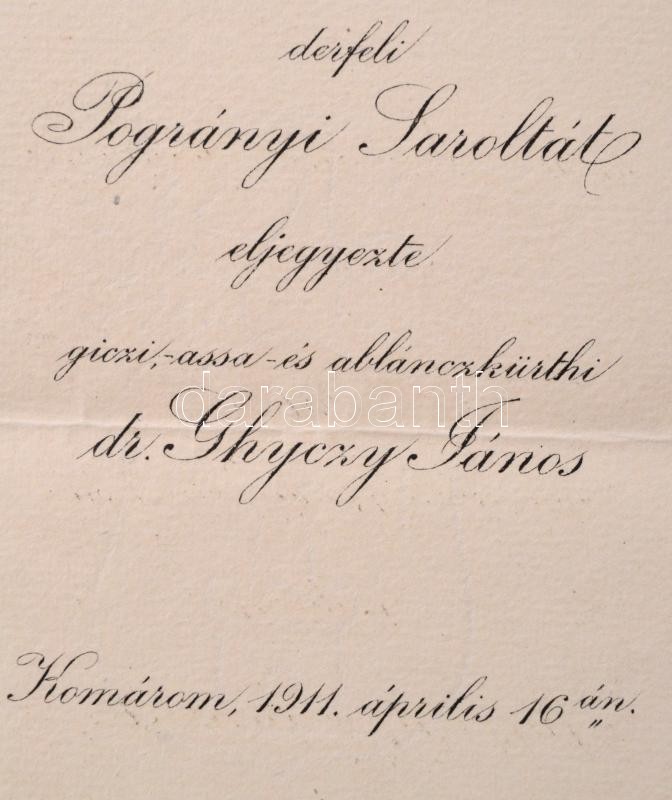 derfeli
Pogrányi Saroltát
eljegyezte
giczi,-assa-és ablánczkürthi
darabanth
dr. Ghyczy János
Komárom, 1911. április 16 án.